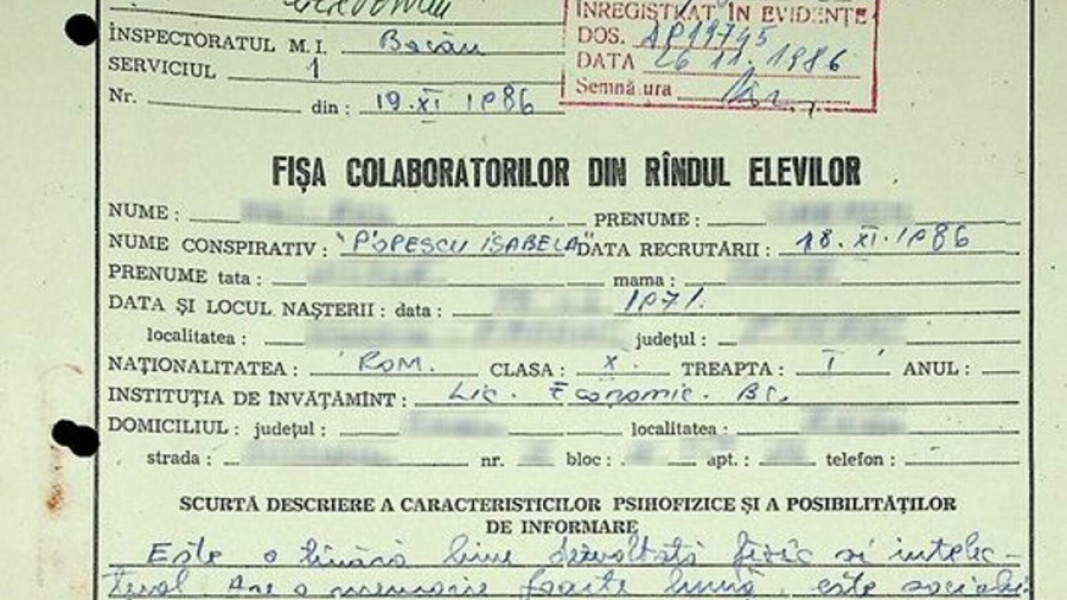 ÎNREGISTRAT ÎN EVIDENȚE
INSPECTORATUL M. I. Bacău
DOS. AP19745
SERVICIUL 1
DATA 26 11. 1986
Semnătura
Nr. din : 19.XI 1986
FIȘA COLABORATORILOR DIN RÎNDUL ELEVILOR
NUME : PRENUME :
NUME CONSPIRATIV : "POPESCU ISABELA" DATA RECRUTĂRII : 18.XI.1986
PRENUME tata : mama :
DATA ȘI LOCUL NAȘTERII : data : 1971.
localitatea : județul :
NAȚIONALITATEA : ROM. CLASA : X. TREAPTA : I ANUL :
INSTITUȚIA DE ÎNVĂȚĂMÎNT : Lic. Economic. Bc.
DOMICILIUL : județul : localitatea :
strada : nr. bloc : apt. : telefon :
SCURTĂ DESCRIERE A CARACTERISTICILOR PSIHOFIZICE ȘI A POSIBILITĂȚILOR
DE INFORMARE
Este o tînără bine dezvoltată fizic și intelec-
tual. Are o memorie foarte bună, este sociabi